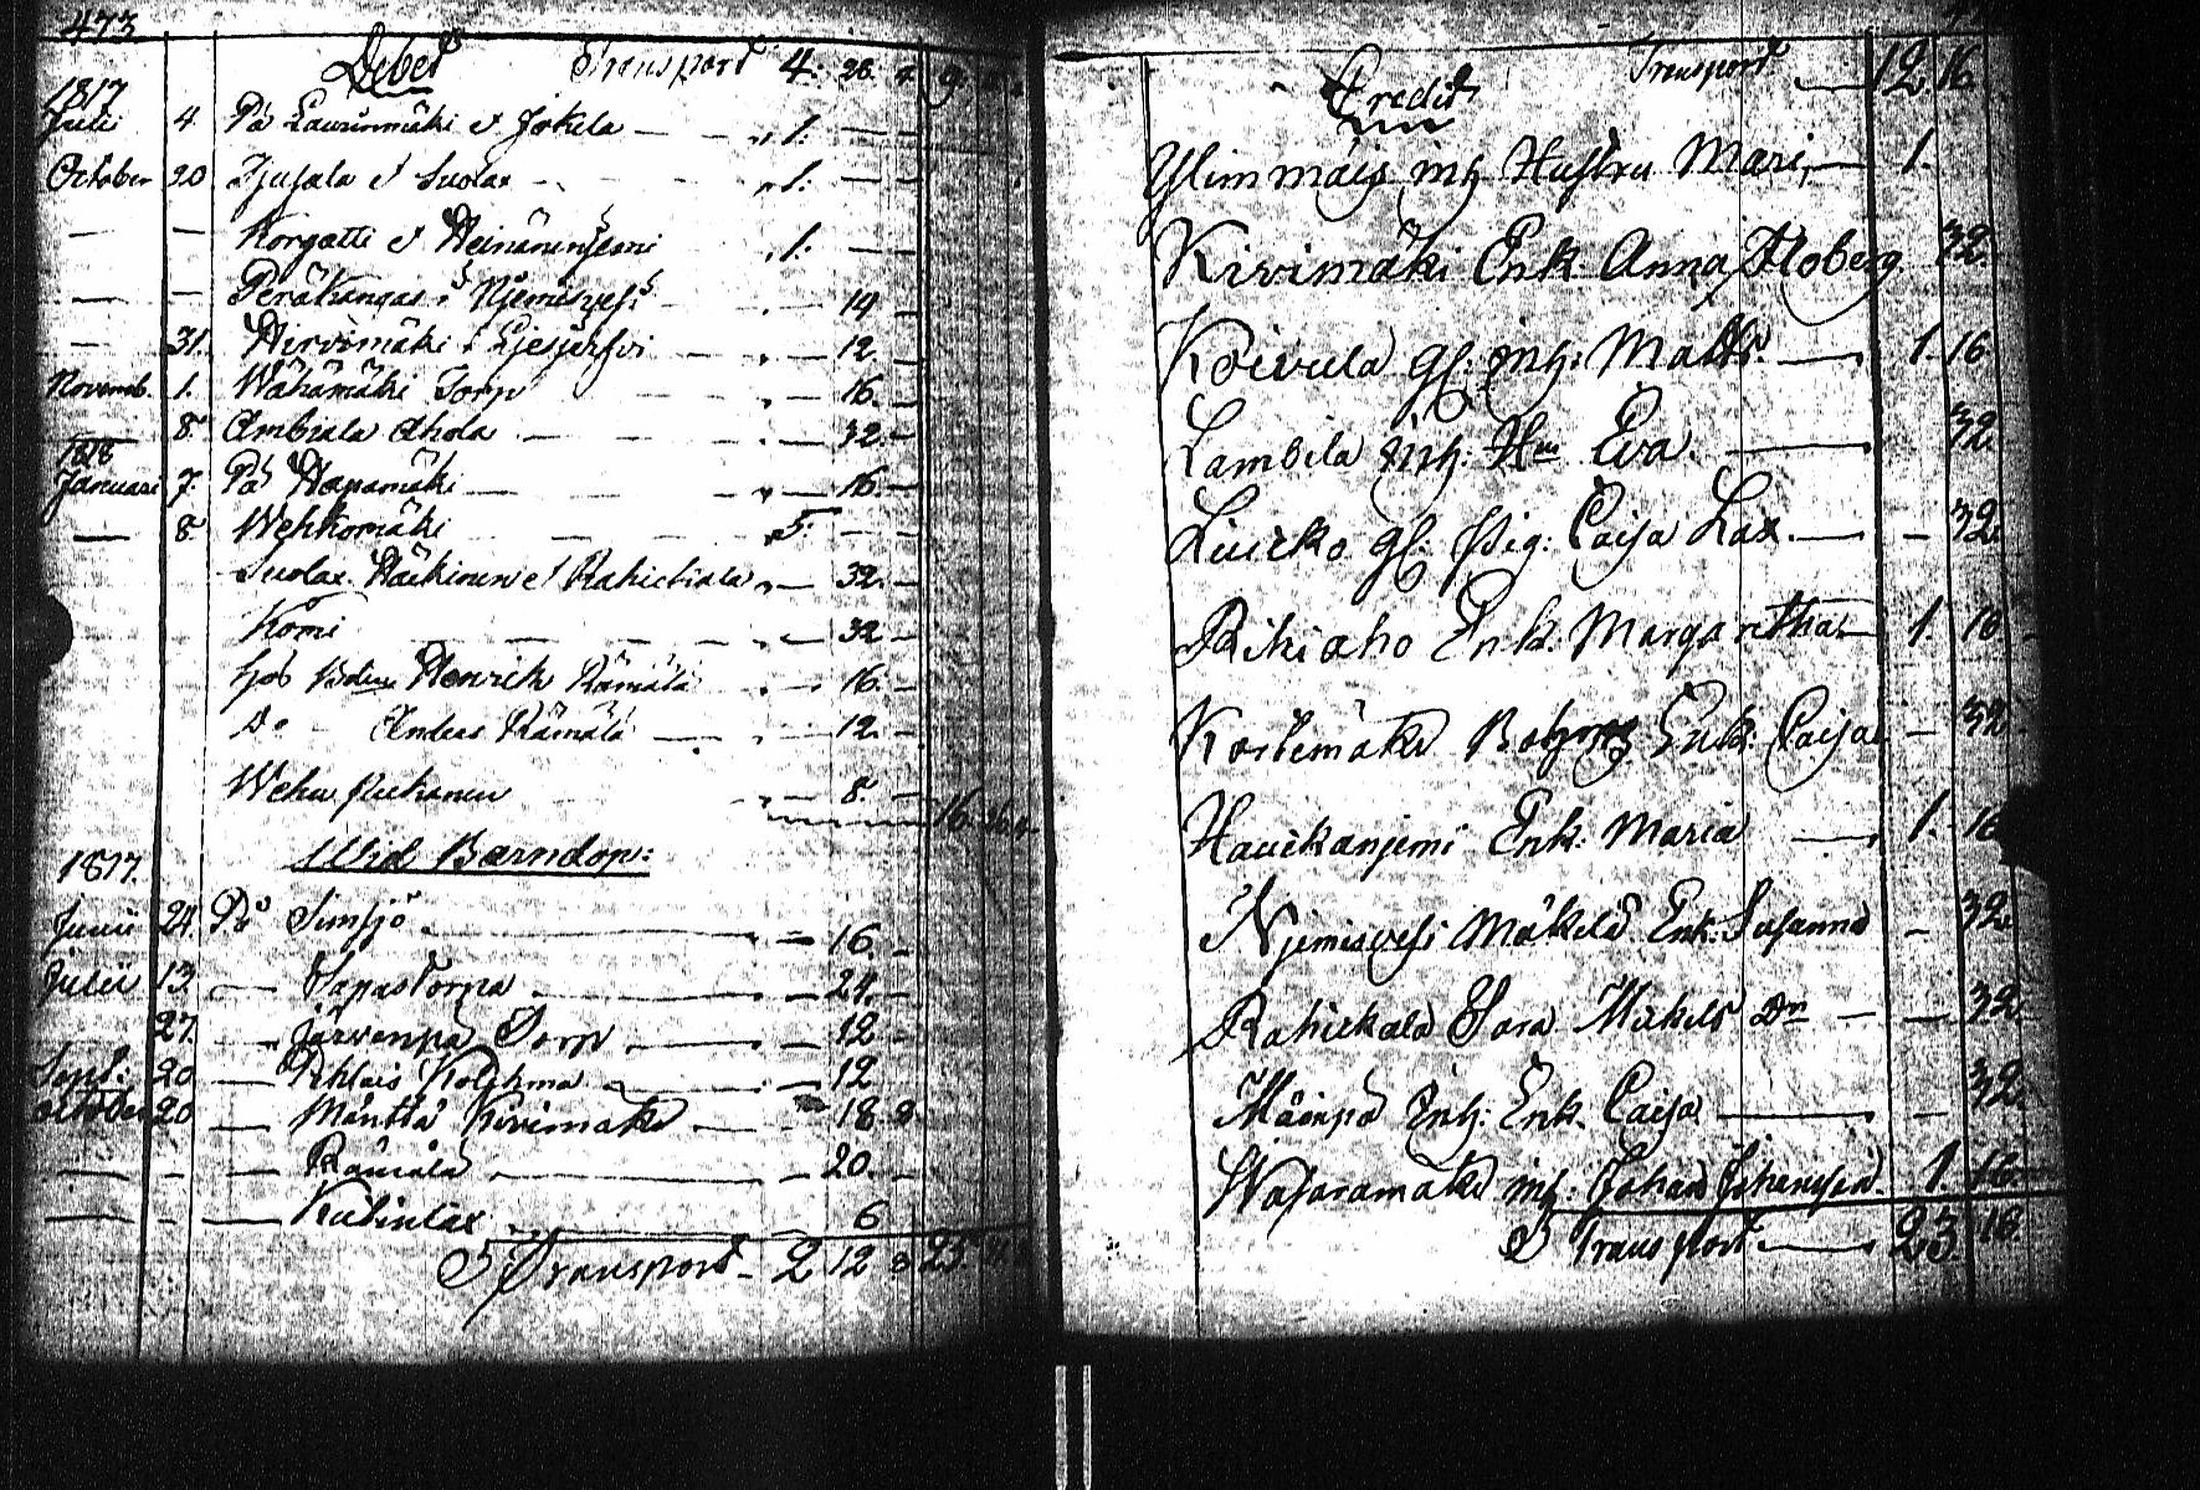 473
Debet Transport 4. 26. 9.
1817
Julii 4. På Laurinmäki et Jokela — 1. — —
October 20 Ijusala et Suolax — 1. — —
— — Korgatti et Heinäniemi 1. —
— — Peräkangas i Njemisvesi 14 —
— 31. Hirvimäki i Ljesjerfvi — 12 —
Novemb. 1. Wähämäki Torp 16. —
8. Ambiala Ahola — 32 —
1818
Januari 7. På Hapamäki — 16. —
— 8. Wehkomäki 5. — —
Suolax Häckinen et — 32. —
Komi — 32 —
hos Henrich Rämälä 16. —
Do Anders Rämälä — 12. —
8. —
16.
Wid Barndop:
1817.
Junii 24. På Simsjö — 16. —
Julii 13 — Sapastorpa — 24. —
27. — Järvenpä Torp — 12 —
Sept: 20 — Pohlais Kolehma — 12
October 20 — Mänttä Kivimäki — 18. 8.
— — — Rämälä — 20. —
— — — 6
Transport — 2 12 8 23.
Credit Transport — 12 16
Ylimmäis inh Hustru Mari, — 1.
Kivimäki Enk. Anna Moberg 32.
Koivula gl: inh: Matts. — 1. 16.
Lambila inh: Hu Eva. — 32.
Liucko gl: pig: Caisa Lax. — — 32.
Rikiaho Enk. Margaretha — 1. 16
Koitemäki Enk: Caisa — 32
Hauckanjemi Enk: Maria — 1. 16
Njemisvesi Mäkelä Enk: Susanna — 32.
Rahickala Sara Michels Dr — — 32.
Mäinpä Inh: Enk. Caisa — — 32.
Wasaramäki inh: Johan Johansson. 1. 16.
Transport — 23. 16.